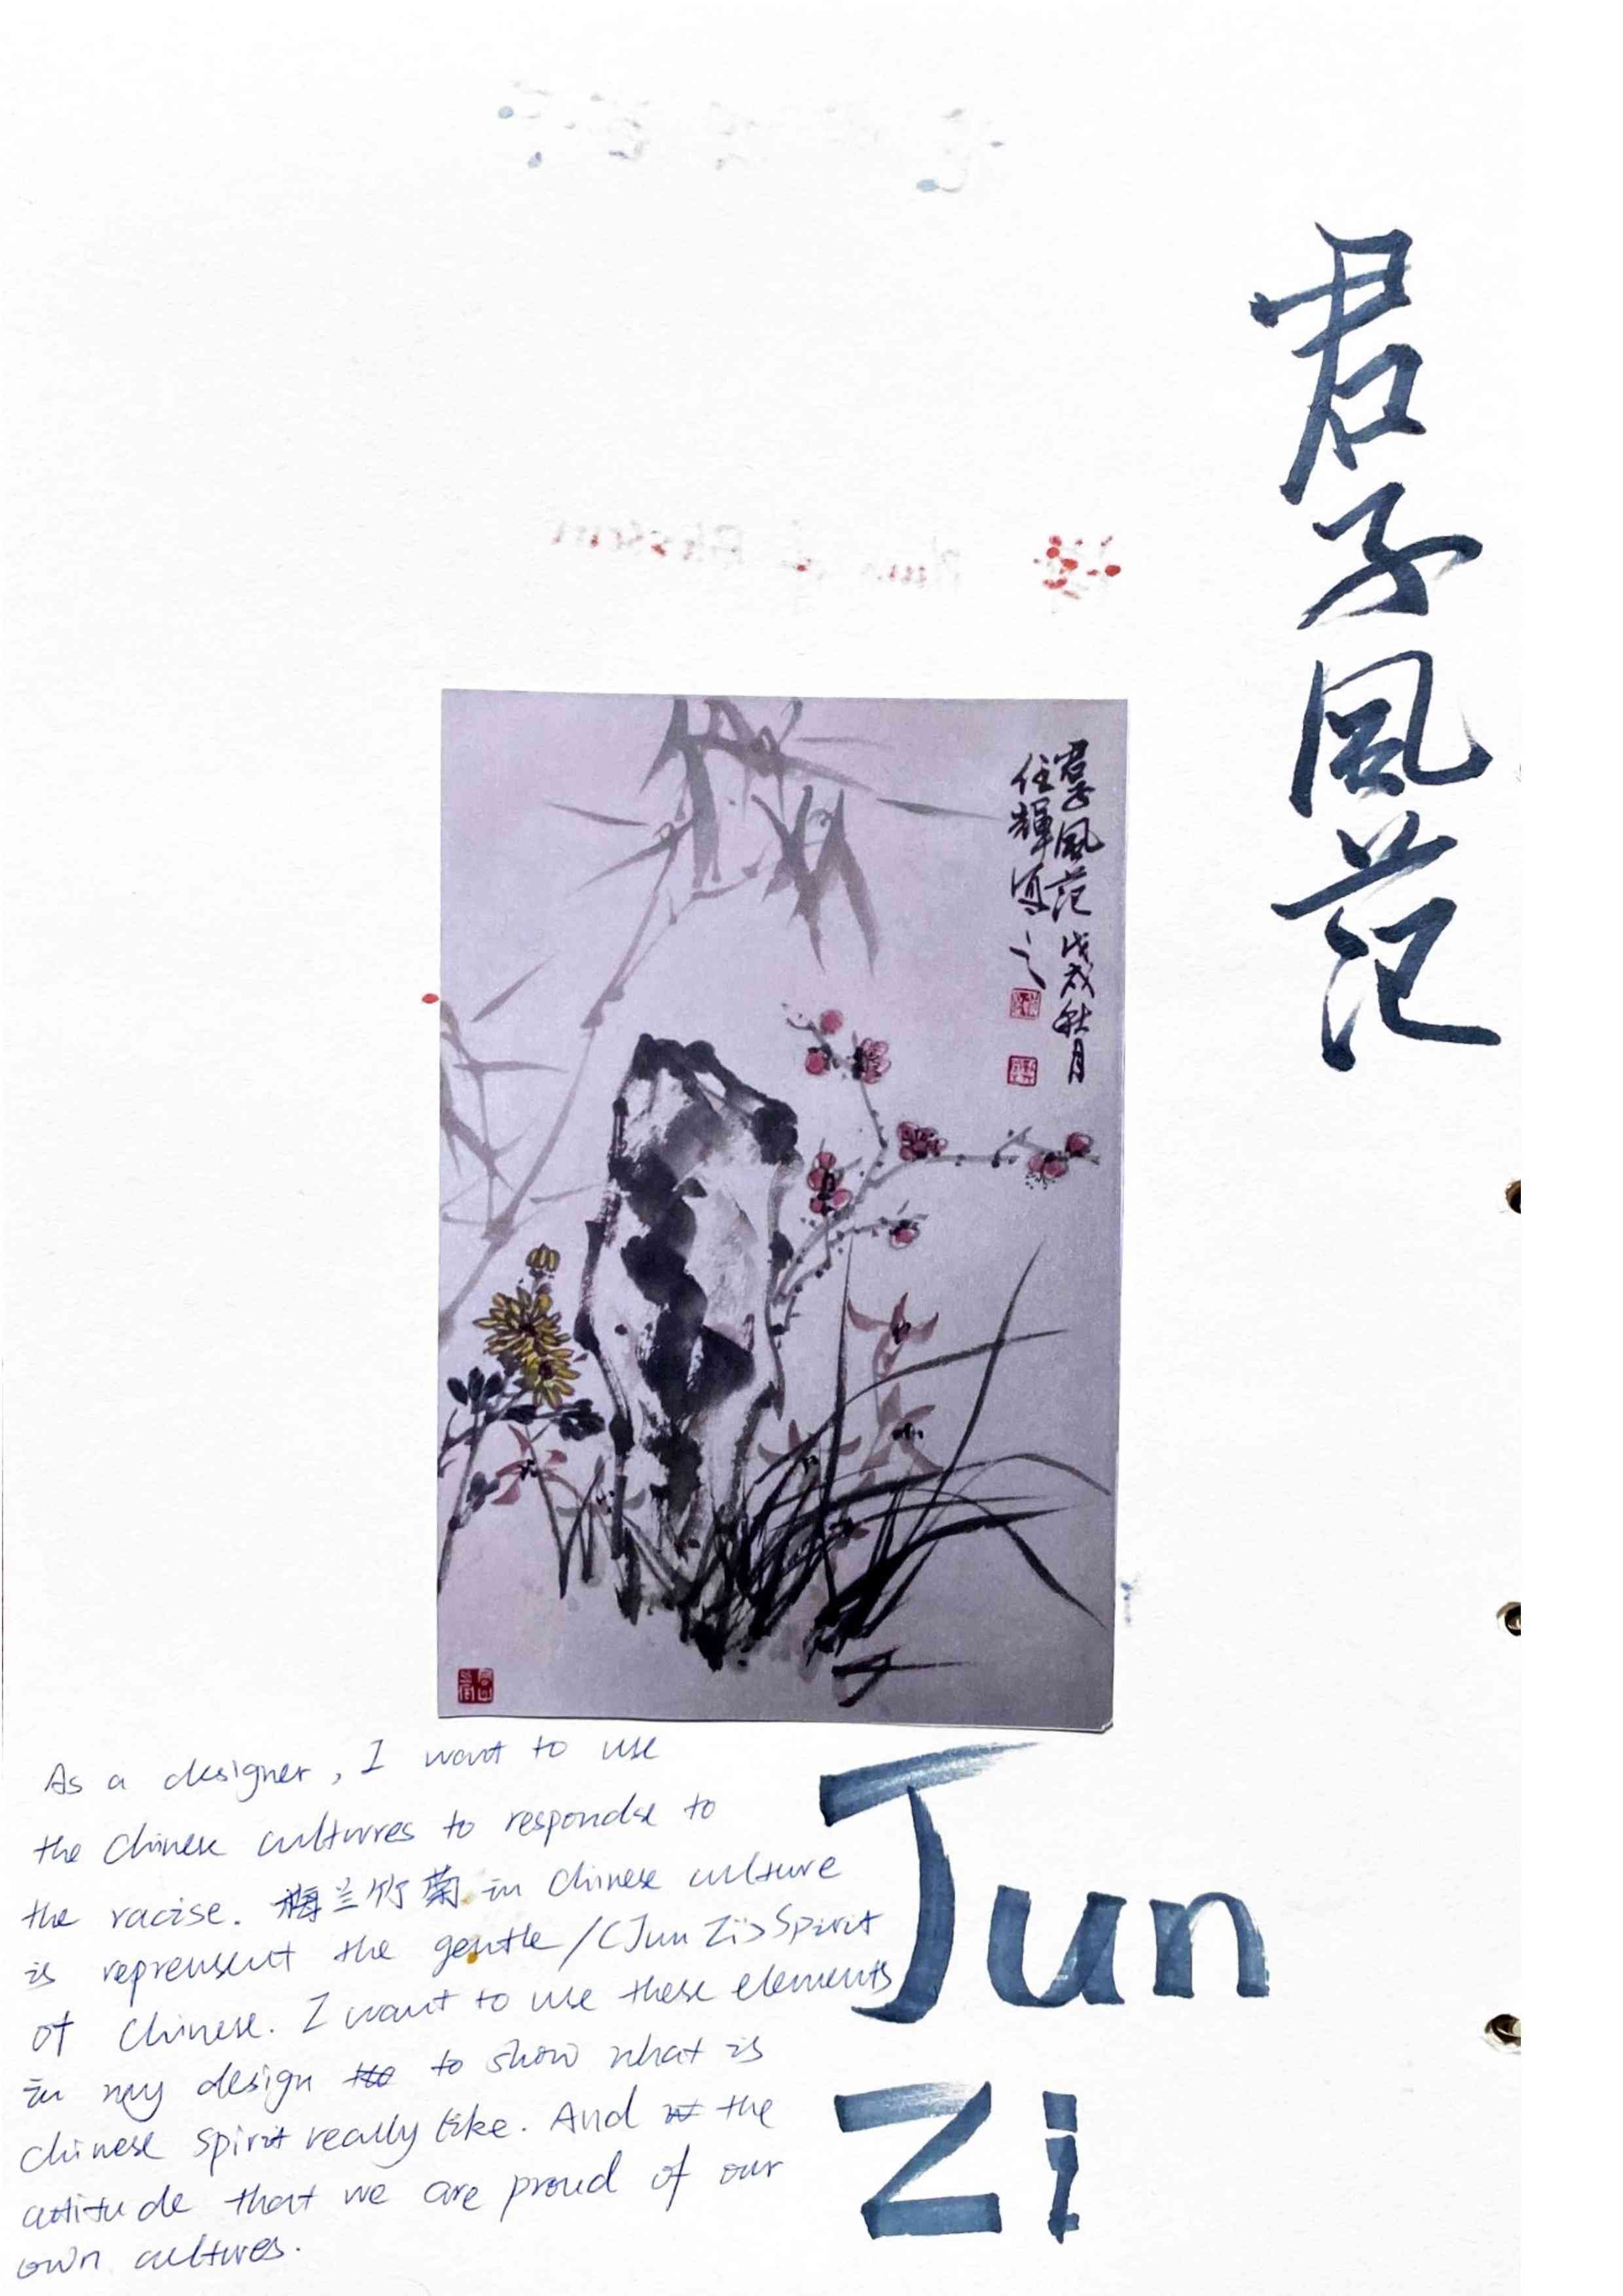 君子風范
君子風范 戊戌秋月
任輝寫之
As a designer, I want to use
the Chinese cultures to respondse to
the racise. 梅兰竹菊 in Chinese culture
is reprensent the gentle/(Jun Zi>Spirit
of Chinese. I want to use these elements
in my design to show what is
Chinese spirit really like. And the
attitude that we are proud of our
own cultures.
Jun
Zi